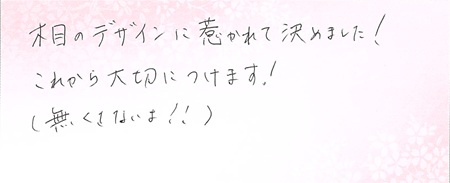 木目のデザインに惹かれて決めました!
これから大切につけます!
(無くさないよ!!)